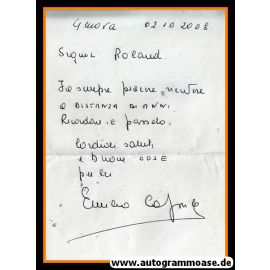 Genova 02.10.2008
Signor Roland.
Fa sempre piacere sentire
a DISTANZA DI ANNI
Ricordare il passato.
Cordiali saluti
e Buone COSE
per lei
Emilio
www.autogrammoase.de